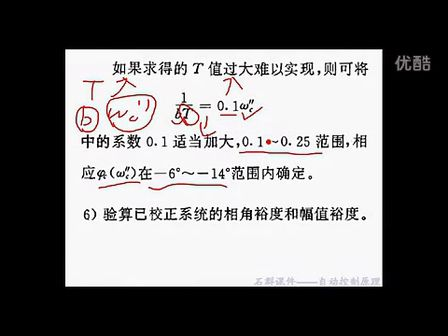 优酷
如果求得的 T 值过大难以实现,则可将
T
b ωc″ 1/bT = 0.1ωc″
中的系数 0.1 适当加大, 0.1 ~ 0.25 范围, 相
应 φc(ωc″) 在 −6°~−14° 范围内确定。
6) 验算已校正系统的相角裕度和幅值裕度。
石群课件——自动控制原理